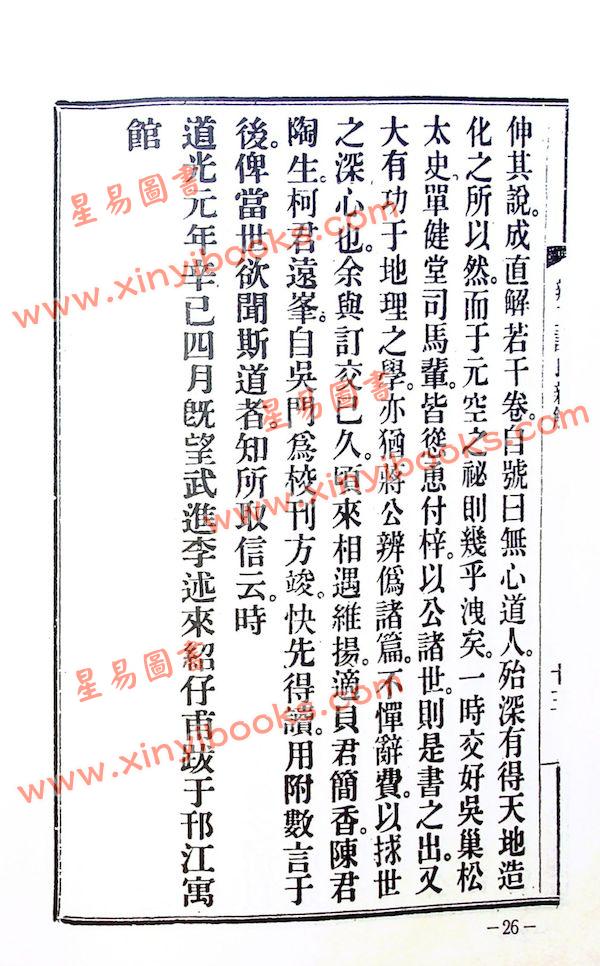 伸其說。成直解若干卷。自號曰無心道人。殆深有得天地造
化之所以然。而于元空之祕則幾乎洩矣。一時交好吳巢松
太史單健堂司馬輩。皆慫恿付梓。以公諸世。則是書之出。又
大有功于地理之學。亦猶蔣公辨僞諸篇。不憚辭費。以捄世
之深心也。余與訂交已久。頃來相遇維揚。適貝君簡香。陳君
陶生。柯君遠峯。自吳門爲校刊方竣。快先得讀。用附數言于
後。俾當世欲聞斯道者。知所取信云。時
道光元年辛巳四月旣望武進李述來紹仔甫跋于邗江寓
館
十三
-26-
星易圖書
www.xinyibooks.com
星易圖書
www.xinyibooks.com
星易圖書
www.xinyibooks.com